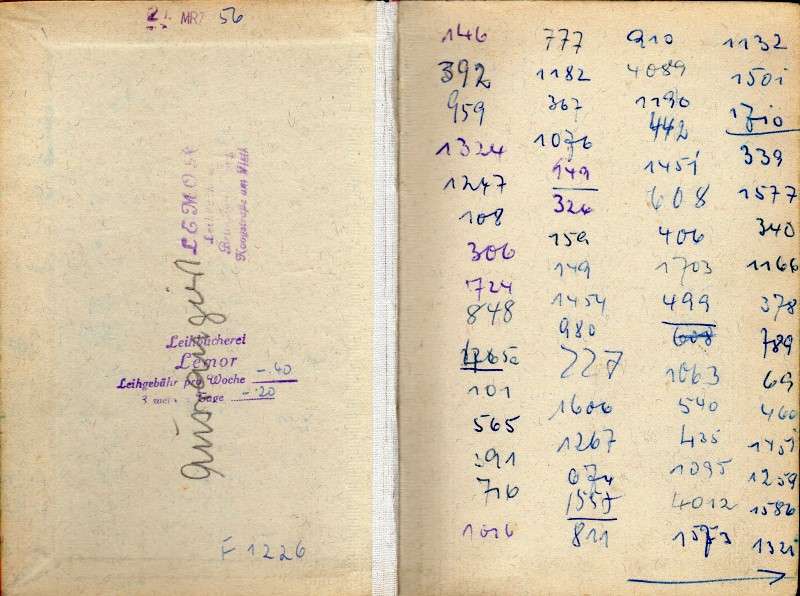 21. MRZ 56
LEMOR
Koogstraße am Fleth
ausrangiert
Leihbücherei
Lemor
Leihgebühr pro Woche -.40
3 Tage -.20
F 1226
146 777 910 1132
392 1182 4089 1501
959 367 1190 1710
1324 1076 442 339
1247 149 1451 1577
108 324 608 340
306 159 406 1166
724 149 1703 378
848 1454 499 789
980 608 69
227 1063 460
101 1606 540 1451
565 1267 435 1259
391 674 1095 1586
716 1557 4012 1321
1016 811 1573